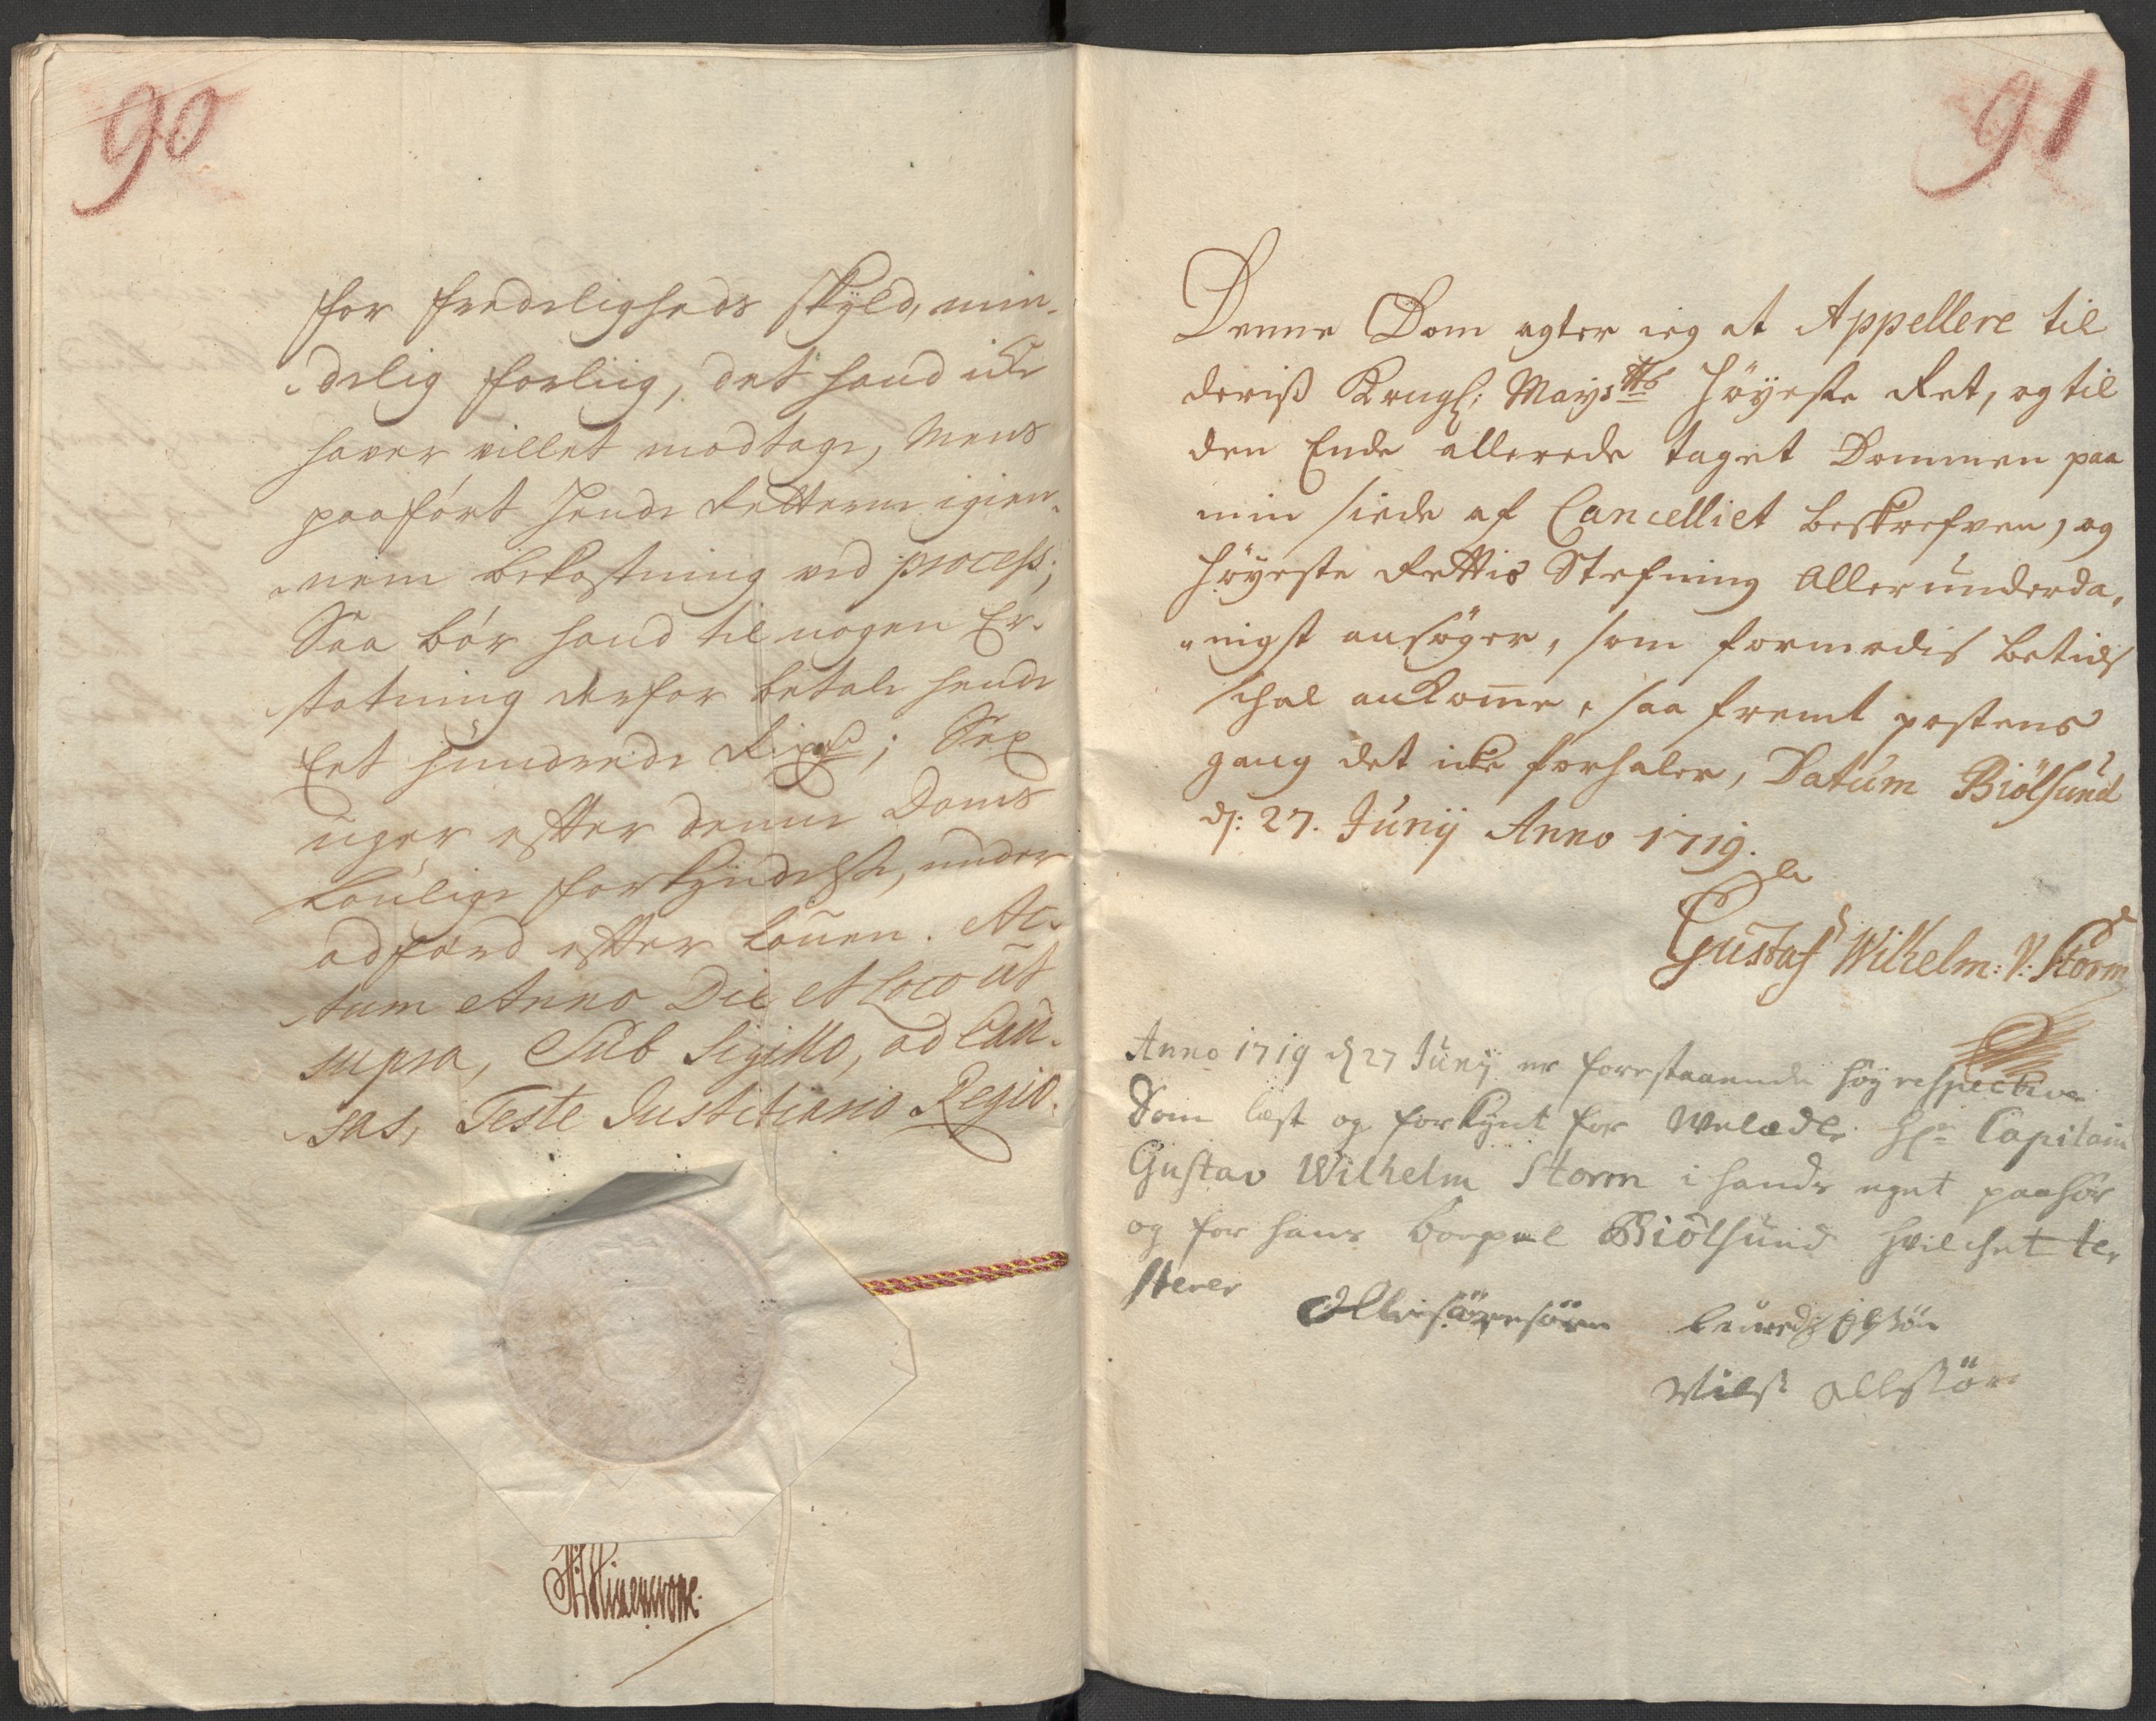 90
for fredeligheds skyld, min-
delig forliig, det hand icke
haver villet modtage, Mens
paaført hende Retterne igien-
nem bekostning ved process;
Saa bør hand til nogen Er-
statning derfor betale hende
Eet hundrede Rixdlr; Sex
uger efter denne Doms
louligе forkyndelse, under
adfærd efter louen. Ac-
tum Anno Die et Loco ut
supra, Sub Sigillo, ad Cau-
sas, Teste Justitiario Regio.
91
Denne Dom agter ieg at Appellere til
deriß Kongl: Mayst:ts Høyeste Ret, og til
den Ende allerede taget Dommen paa
min siede af Cancelliet beskrefven, og
Høyeste Rettis Stefning Allerunderda-
nigst ansøger, som formodis betids
schal ankom̅e, saa fremt postens
gang det icke forhaler, Datum Biölsund
d: 27. Junij Anno 1719.
Gustaf Wilhelm: V: Storm
Anno 1719 d 27 Junij er forestaaende høyrespective
Dom læst og forkynt for Welædle Hr Capitain
Gustav Wilhelm Storm i hands eget paahør
og for hans boepæl Biölsund hvilchet te-
sterer
Olle Sørensøn